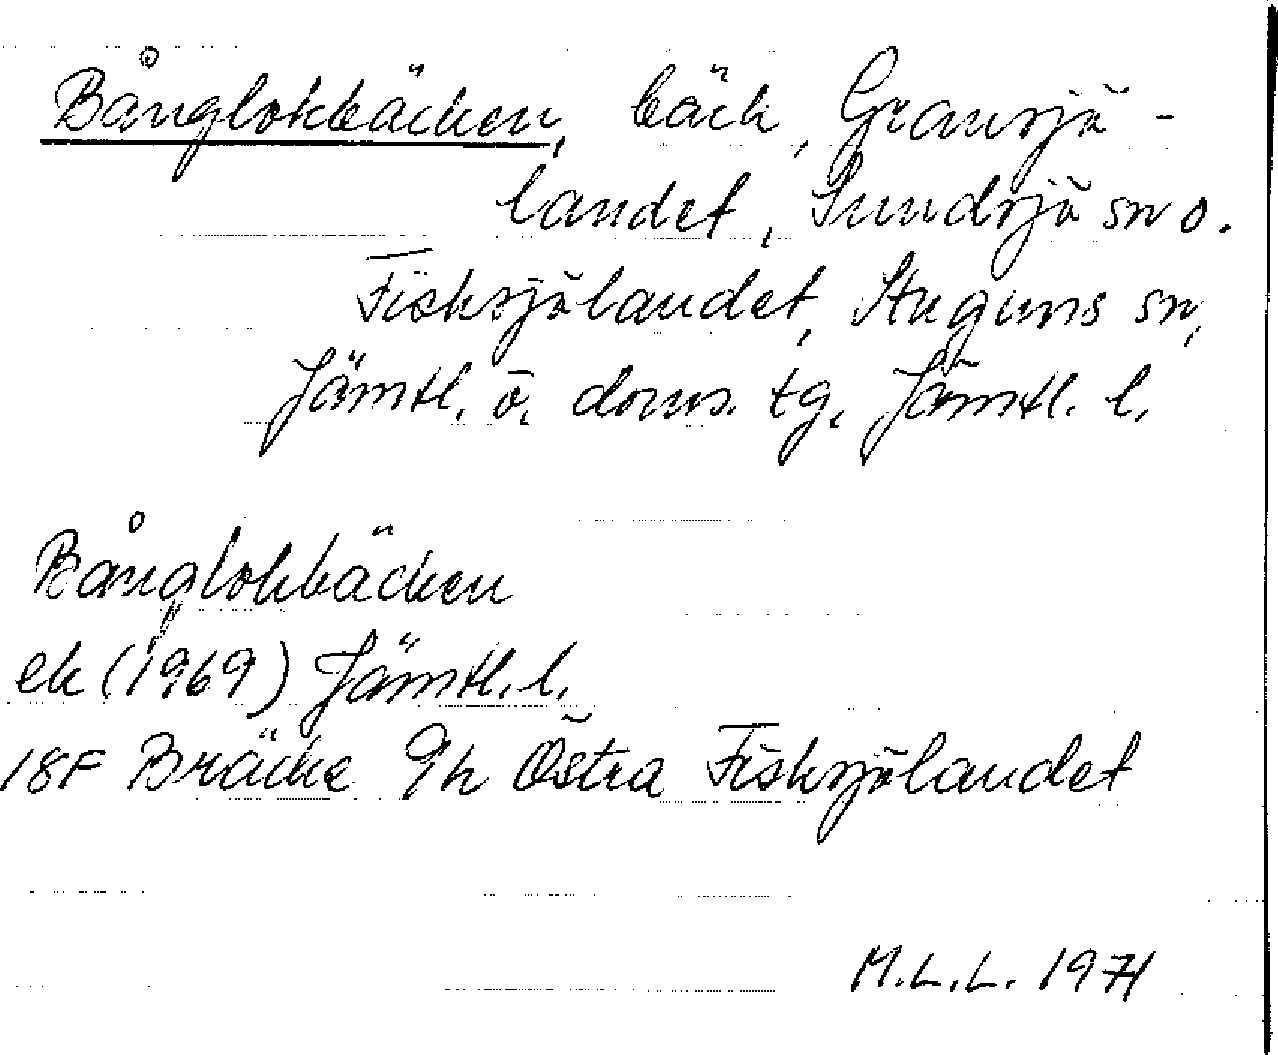 Bånglokbäcken, bäck, Gransjö-
landet, Sundsjö sn o.
Fisksjölandet, Stuguns sn,
Jämtl. ö. doms. tg, Jämtl. l.
Bånglokbäcken
ek (1969) Jämtl. l.
18F Bräcke 9h Östra Fisksjölandet
M.L.L. 1971